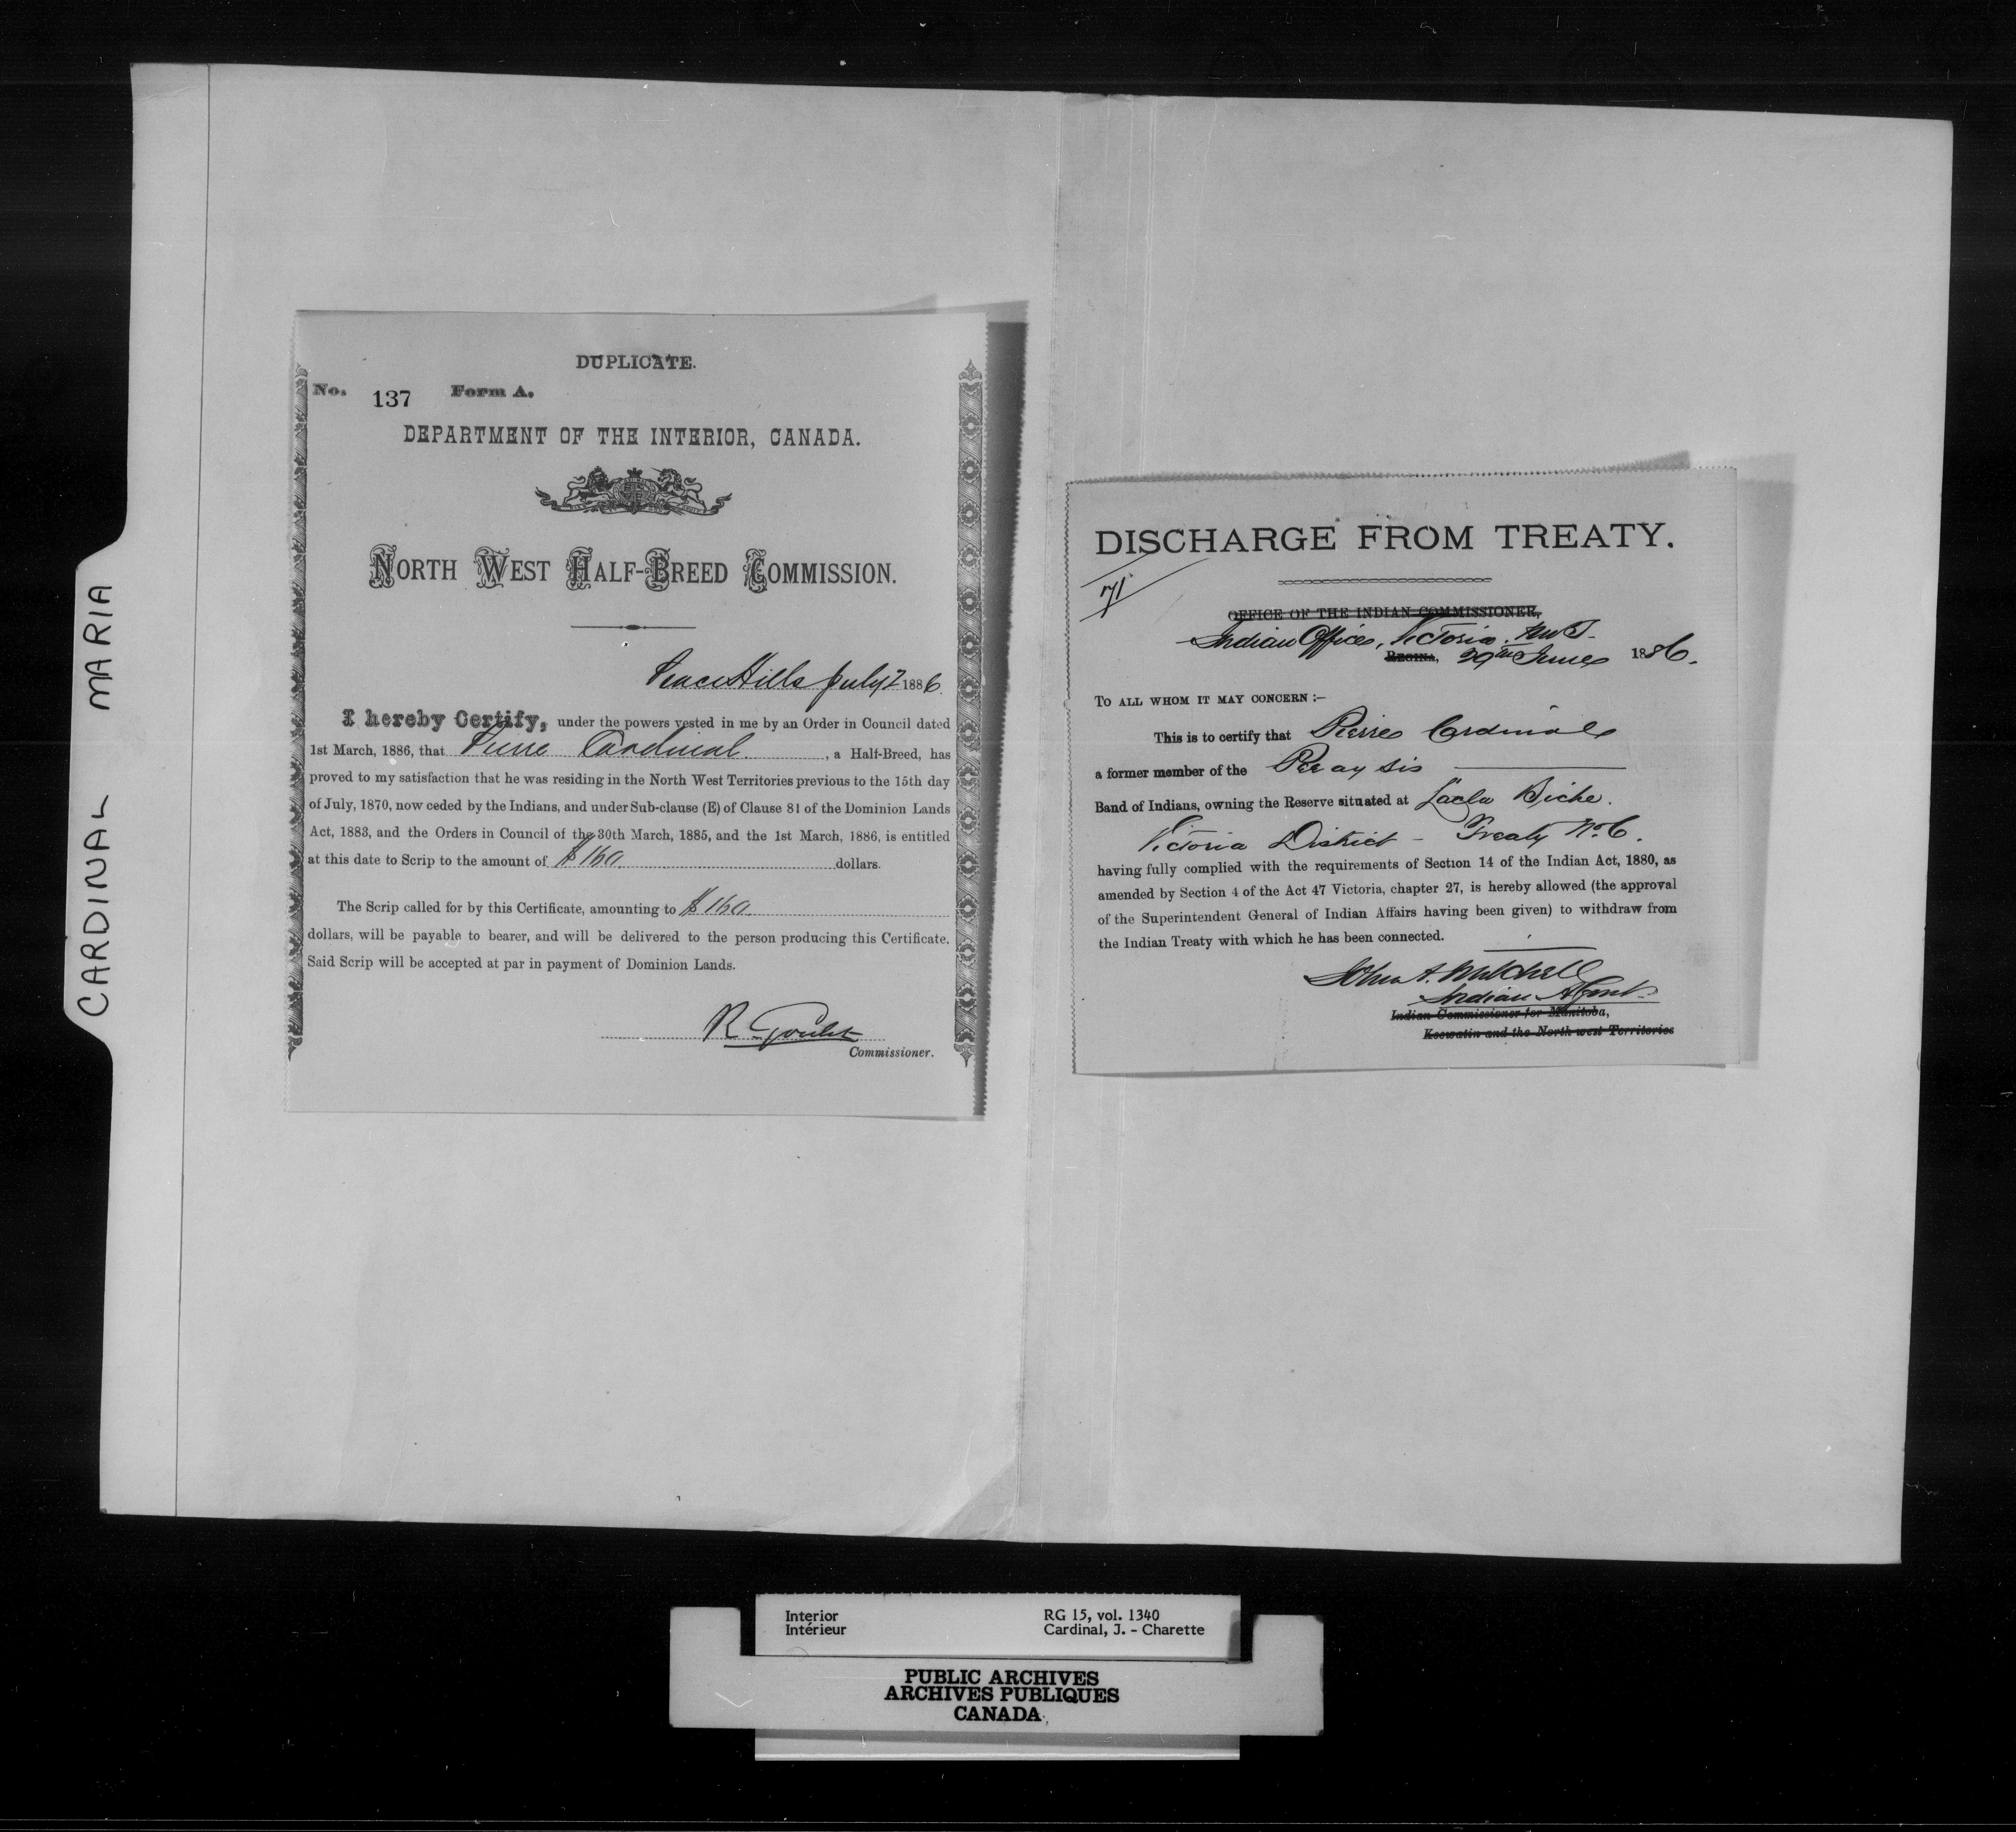 CARDINAL MARIA
DUPLICATE.
No. 137 Form A.
DEPARTMENT OF THE INTERIOR, CANADA.
NORTH WEST HALF-BREED COMMISSION.
Peace Hills July 2 1886.
I hereby Certify, under the powers vested in me by an Order in Council dated
1st March, 1886, that Pierre Cardinal. , a Half-Breed, has
proved to my satisfaction that he was residing in the North West Territories previous to the 15th day
of July, 1870, now ceded by the Indians, and under Sub-clause (E) of Clause 81 of the Dominion Lands
Act, 1883, and the Orders in Council of the 30th March, 1885, and the 1st March, 1886, is entitled
at this date to Scrip to the amount of $160 dollars.
The Scrip called for by this Certificate, amounting to $160.
dollars, will be payable to bearer, and will be delivered to the person producing this Certificate.
Said Scrip will be accepted at par in payment of Dominion Lands.
R. Goulet
Commissioner.
DISCHARGE FROM TREATY.
71
OFFICE OF THE INDIAN COMMISSIONER,
Indian Office, Victoria. NWT.
REGINA, 29th June 1886.
TO ALL WHOM IT MAY CONCERN :—
This is to certify that Pierre Cardinal
a former member of the
Band of Indians, owning the Reserve situated at Lac la Biche.
Victoria District – Treaty No. 6.
having fully complied with the requirements of Section 14 of the Indian Act, 1880, as
amended by Section 4 of the Act 47 Victoria, chapter 27, is hereby allowed (the approval
of the Superintendent General of Indian Affairs having been given) to withdraw from
the Indian Treaty with which he has been connected.
John A. Mitchell
Indian Agent.
Indian Commissioner for Manitoba,
Keewatin and the North-west Territories
Interior RG 15, vol. 1340
Intérieur Cardinal, J. - Charette
PUBLIC ARCHIVES
ARCHIVES PUBLIQUES
CANADA